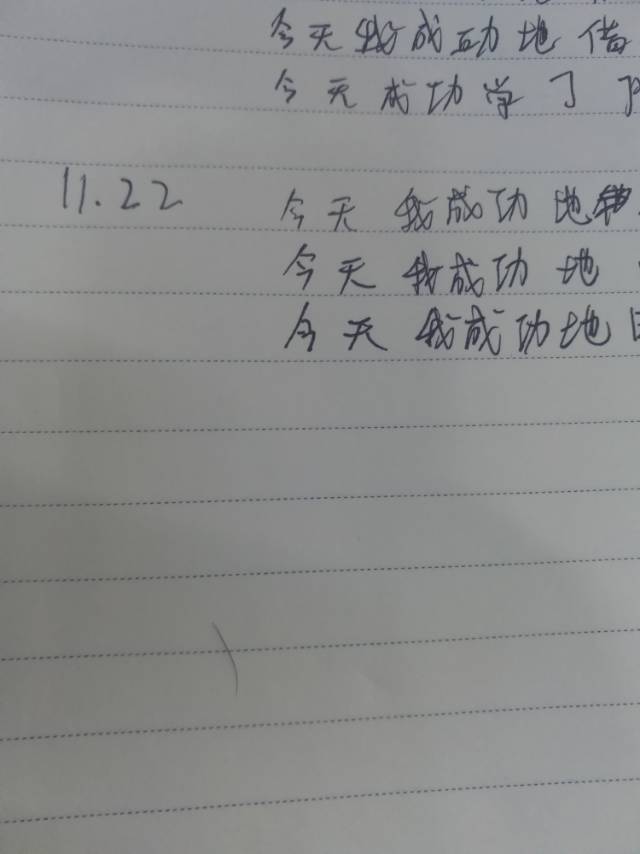 今天我成功地借
今天成功学了
11.22 今天我成功地
今天我成功地
今天我成功地